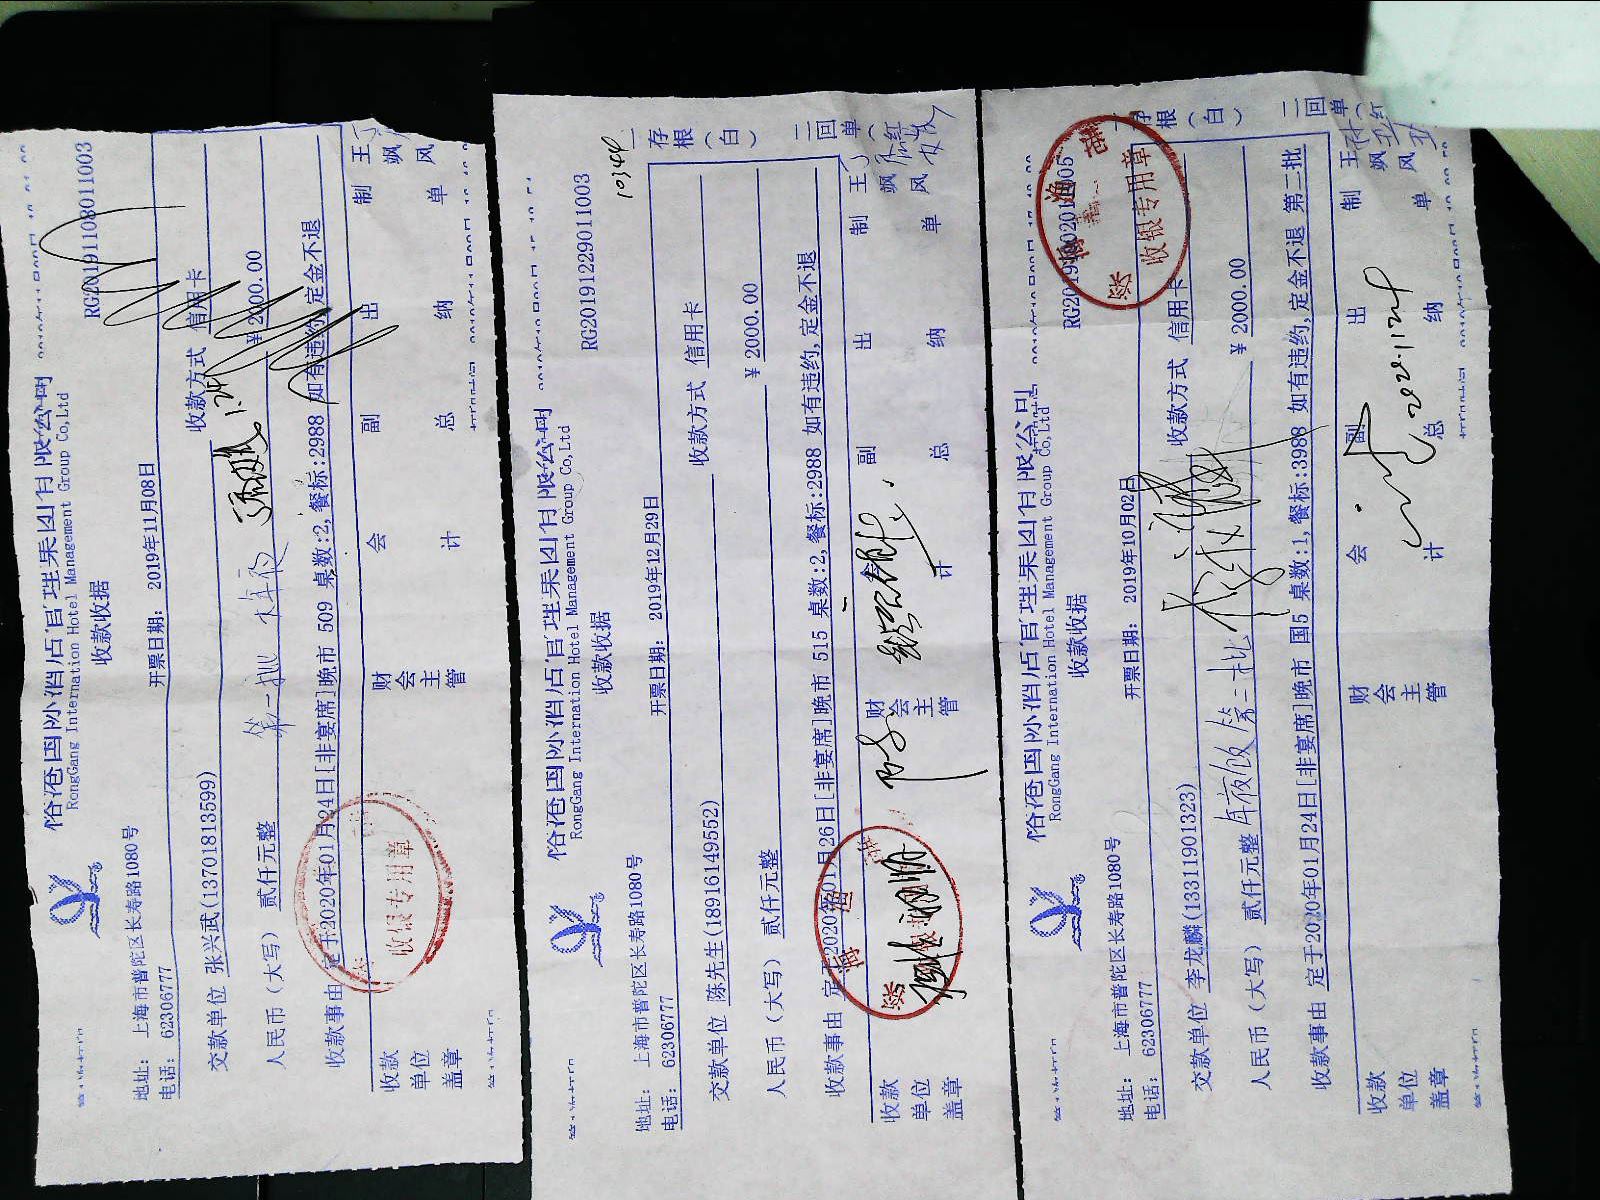 RongGang International Hotel Management Group Co,Ltd
收款收据
RG20191108011003
地址: 上海市普陀区长寿路1080号
电话: 62306777
开票日期: 2019年11月08日
交款单位 张兴武(13701813599)
收款方式 信用卡
人民币(大写) 贰仟元整
¥2000.00
第二批 年夜
收款事由 定于2020年01月24日[非宴席]晚市 509 桌数:2,餐标:2988 如有违约,定金不退
收款单位盖章
财会主管
会计
副总
出纳
制单
王飒风
收银专用章
RongGang International Hotel Management Group Co,Ltd
收款收据
RG20191229011003
10344
地址: 上海市普陀区长寿路1080号
电话: 62306777
开票日期: 2019年12月29日
一存根(白)
二回单(红)
交款单位 陈先生(18916149552)
收款方式 信用卡
人民币(大写) 贰仟元整
¥2000.00
收款事由 定于2020年01月26日[非宴席]晚市 515 桌数:2,餐标:2988 如有违约,定金不退
收款单位盖章
财会主管
会计
副总
出纳
制单
王飒风
RongGang International Hotel Management Group Co,Ltd
收款收据
地址: 上海市普陀区长寿路1080号
电话: 62306777
开票日期: 2019年10月02日
存根(白)
二回单(红)
交款单位 李龙麟(13311901323)
收款方式 信用卡
人民币(大写) 贰仟元整
年夜饭第二批
¥2000.00
收款事由 定于2020年01月24日[非宴席]晚市 国5 桌数:1,餐标:3988 如有违约,定金不退 第二批
收款单位盖章
财会主管
会计
副总
出纳
制单
王飒风
收银专用章